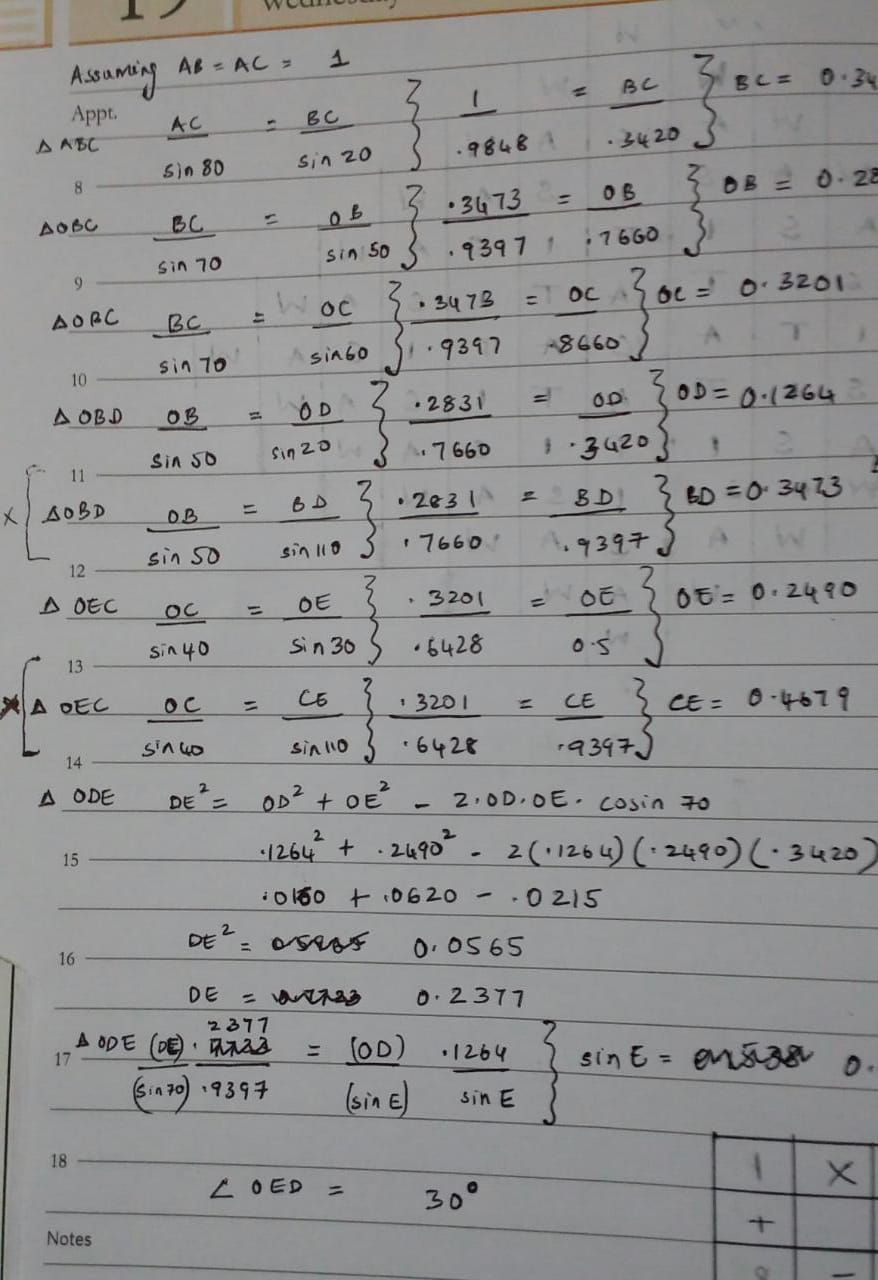 19 Wednesday
Assuming AB = AC = 1
Appt.
Δ ABC AC/sin 80 = BC/sin 20 } 1/.9848 = BC/.3420 } BC = 0.34
8
Δ OBC BC/sin 70 = OB/sin 50 } .3473/.9397 = OB/.7660 } OB = 0.28
9
Δ OBC BC/sin 70 = OC/sin 60 } .3473/.9397 = OC/.8660 } OC = 0.3201
10
Δ OBD OB/sin 50 = OD/sin 20 } .2831/.7660 = OD/.3420 } OD = 0.1264
11
x [ Δ OBD OB/sin 50 = BD/sin 110 } .2831/.7660 = BD/.9397 } BD = 0.3473
12
Δ OEC OC/sin 40 = OE/sin 30 } .3201/.6428 = OE/0.5 } OE = 0.2490
13
x [ Δ OEC OC/sin 40 = CE/sin 110 } .3201/.6428 = CE/.9397 } CE = 0.4679
14
Δ ODE DE² = OD² + OE² - 2.OD.OE. cosin 70
15 .1264² + .2490² - 2(.1264)(.2490)(.3420)
.0160 + .0620 - .0215
16 DE² = 0.0565
DE = 0.2377
17 Δ ODE (DE) .2377/(sin 70) .9397 = (OD) .1264/(sin E) sin E } sin E = 0.
18
∠ OED = 30°
1 x
+
-
Notes